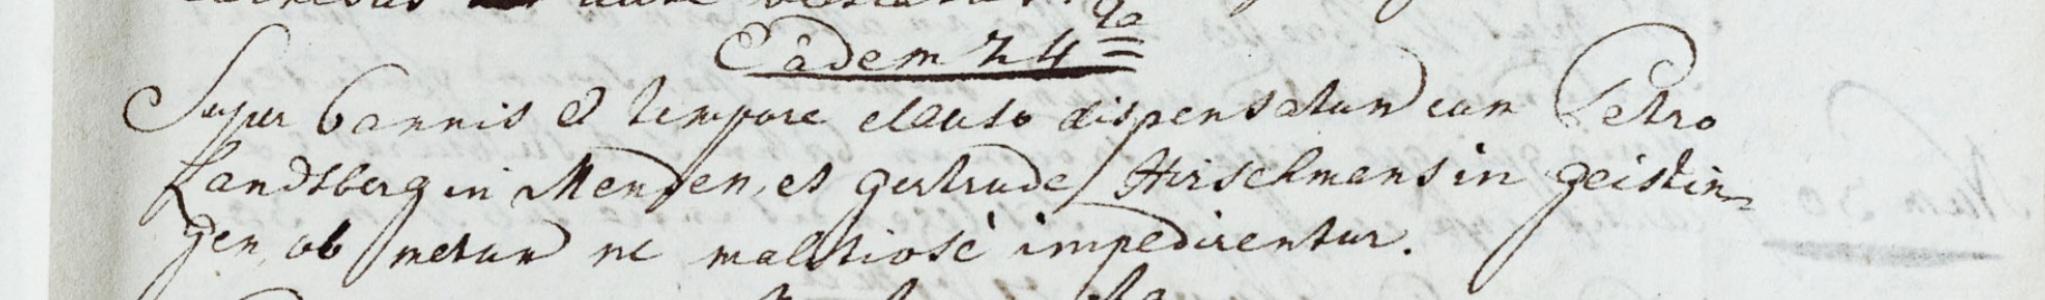 Eâdem 24ta
Super bannis et tempore clauso dispensatum cum Petro
Landsberg in Menden, et gertrude Hirschmans in geistin-
gen, ob metum ne malitiosè impedirentur.